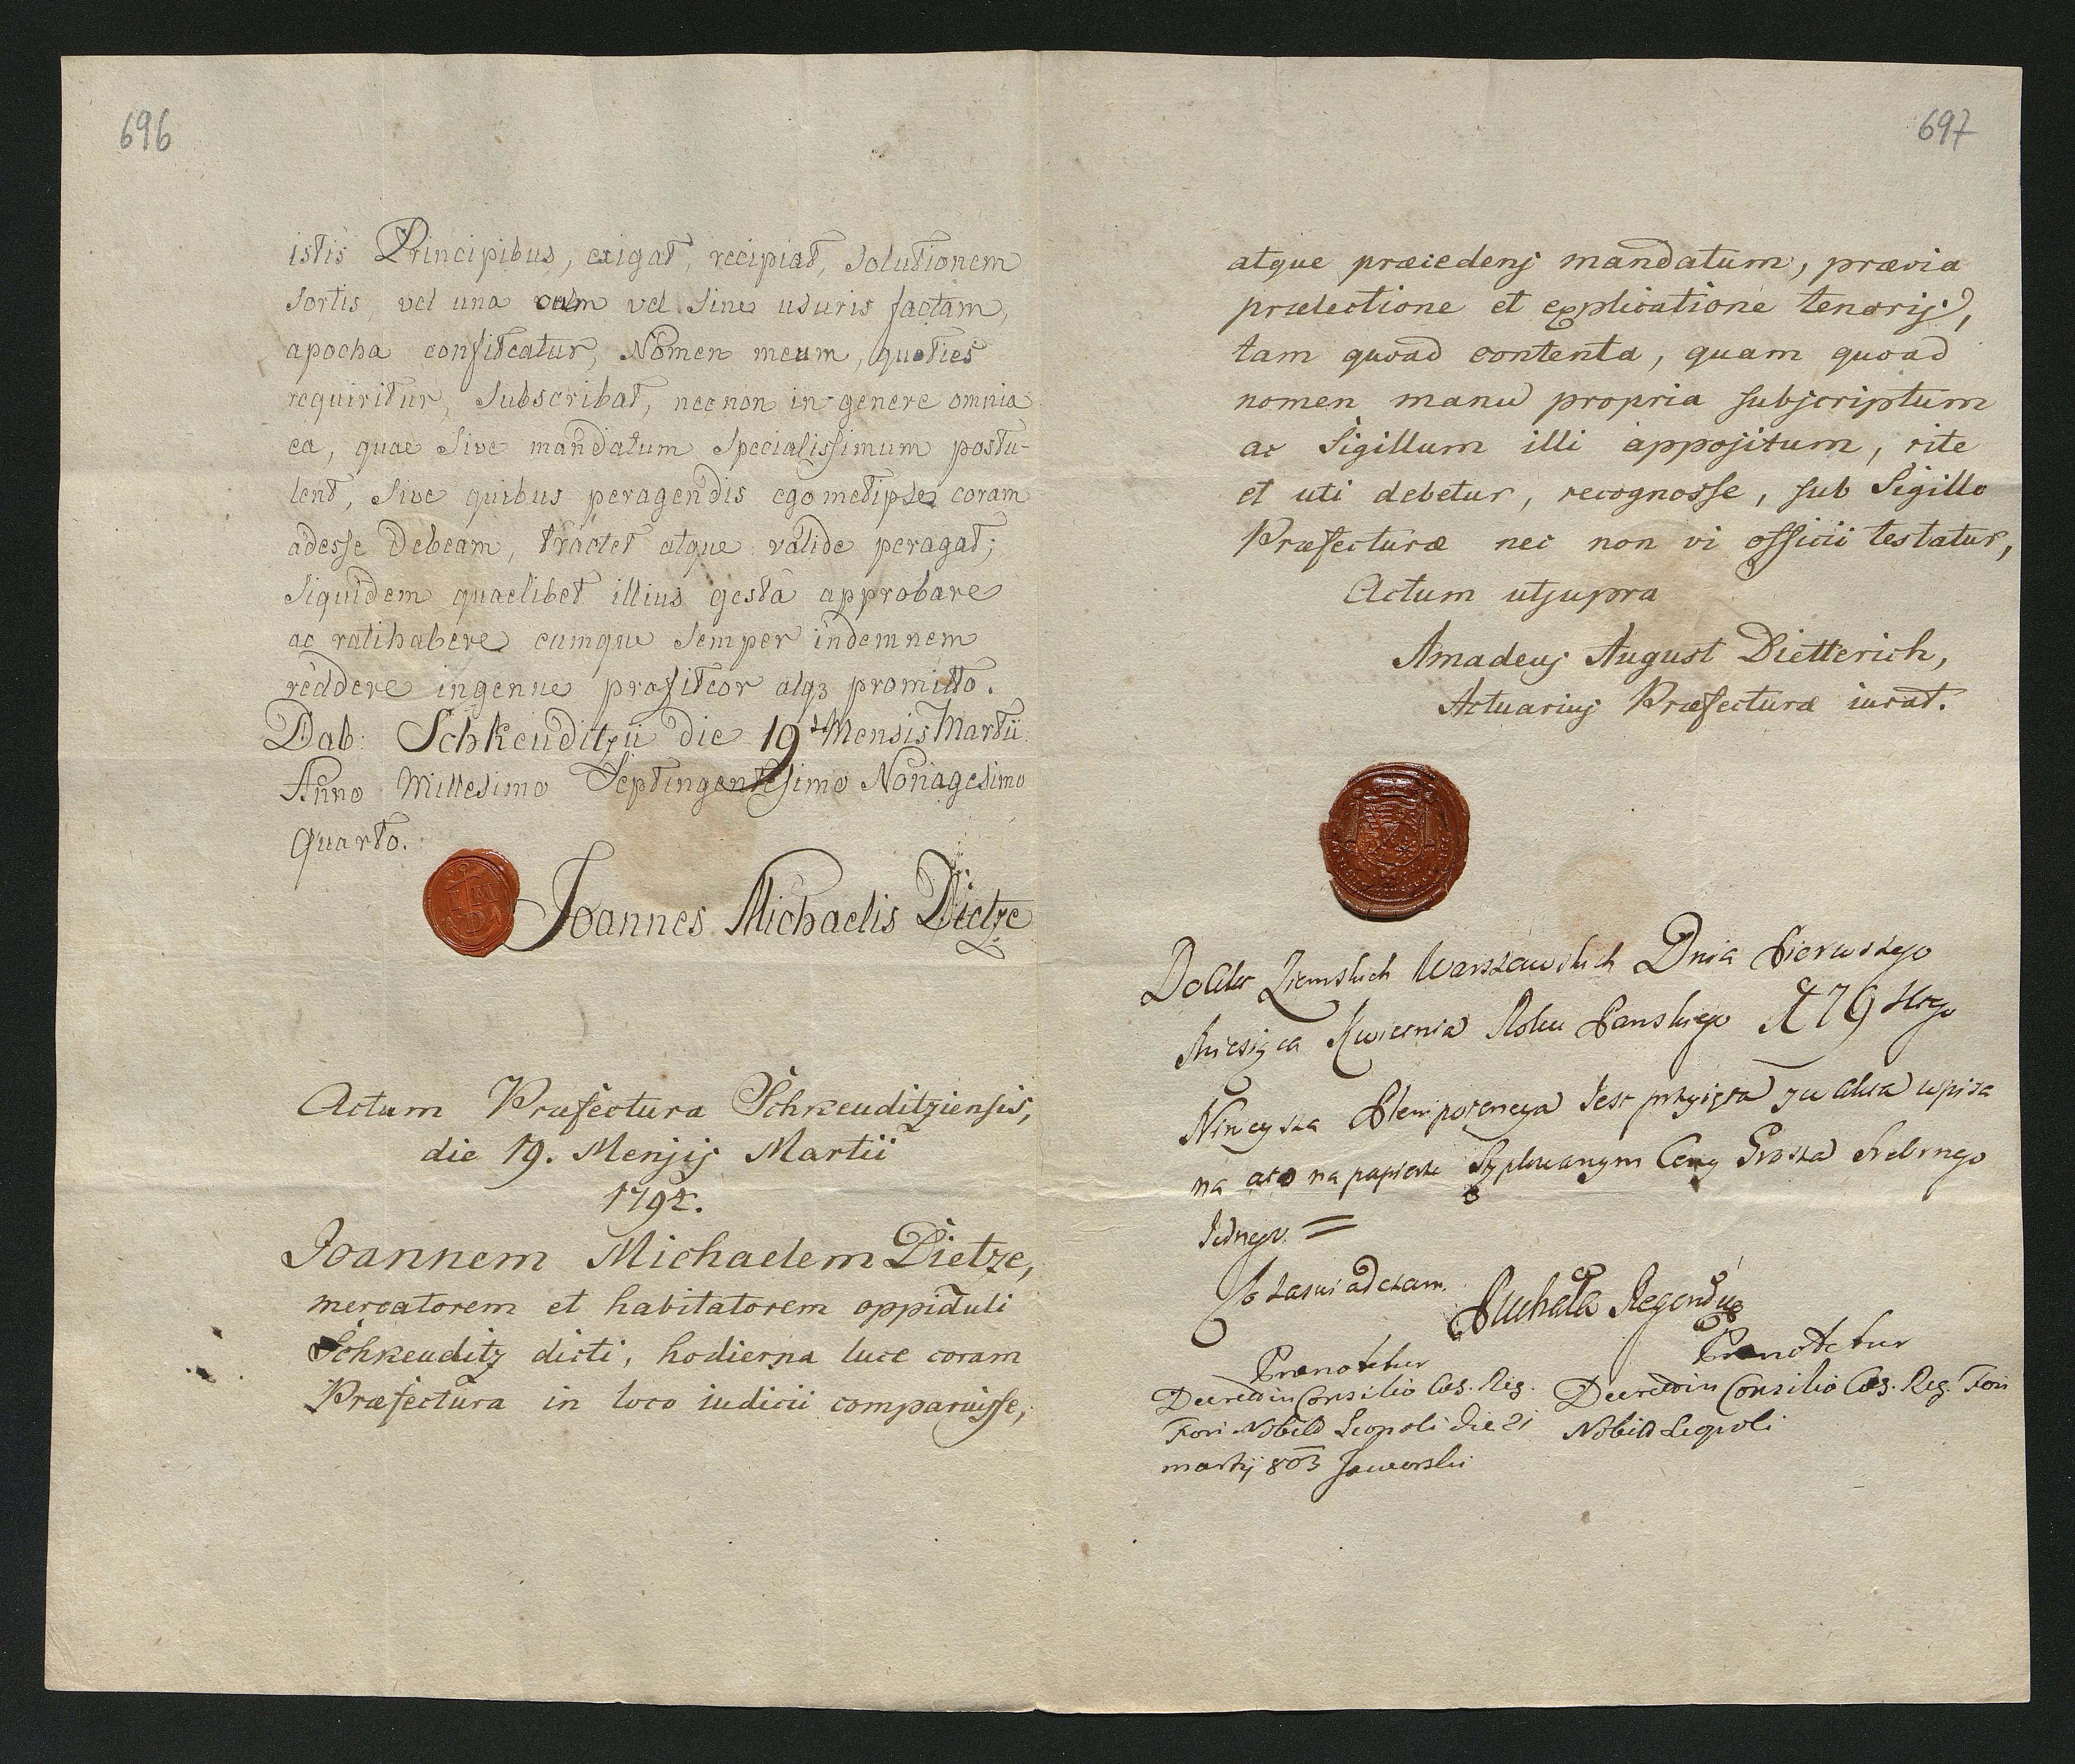 696
istis Principibus, exigat, recipiat, solutionem
sortis, vel una cum vel sine usuris factam,
apocha confiteatur, Nomen meum, quoties
requiritur, subscribat, nec non in genere omnia
ea, quae sive mandatum specialissimum postu-
lent, sive quibus peragendis egometipse coram
adesse debeam, tractet atque valide peragat;
siquidem quaelibet illius gesta approbare
ac ratihabere eumque semper indemnem
reddere ingenue profiteor atqz promitto.
Dab: Schkeuditzii die 19 Mensis Martii
Anno Millesimo Septingentesimo Nonagesimo
Quarto.
IM
D
Joannes Michaelis Dietze
Actum Præfectura Schkeuditziensis,
die 19. Mensis Martii
1794.
Joannem Michaelem Dietze,
mercatorem et habitatorem oppiduli
Schkeuditz dicti, hodierna luce coram
Præfectura in loco iudicii comparuisse,
697
atque præcedens mandatum, prævia
prælectione et explicatione tenoris,
tam quoad contenta, quam quoad
nomen manu propria subscriptum
ac Sigillum illi appositum, rite
et uti debetur, recognosse, sub Sigillo
Præfecturæ nec non vi officii testatur,
Actum utsupra
Amadeus August Dietterich,
Actuarius Præfecturæ iurat.
Do Akt Ziemskich Warszawskich Dnia Pierwszego
Miesiąca Kwietnia Roku Panskiego
Ninieysza Plenipotencya Jest przyięta y w Akta wpisa
na a to na papierze Styplowanym Ceny Grosza Srebrngo
Jednego =
Co zaswiadczam. Regent
Prænotetur
Decretum in Consilio Cæs. Reg.
Fori Nobild Leopoli die 21
martij 803 Jaworski
Prænotetur
Decretum in Consilio Cæs. Reg. Fori
Nobild Leopoli